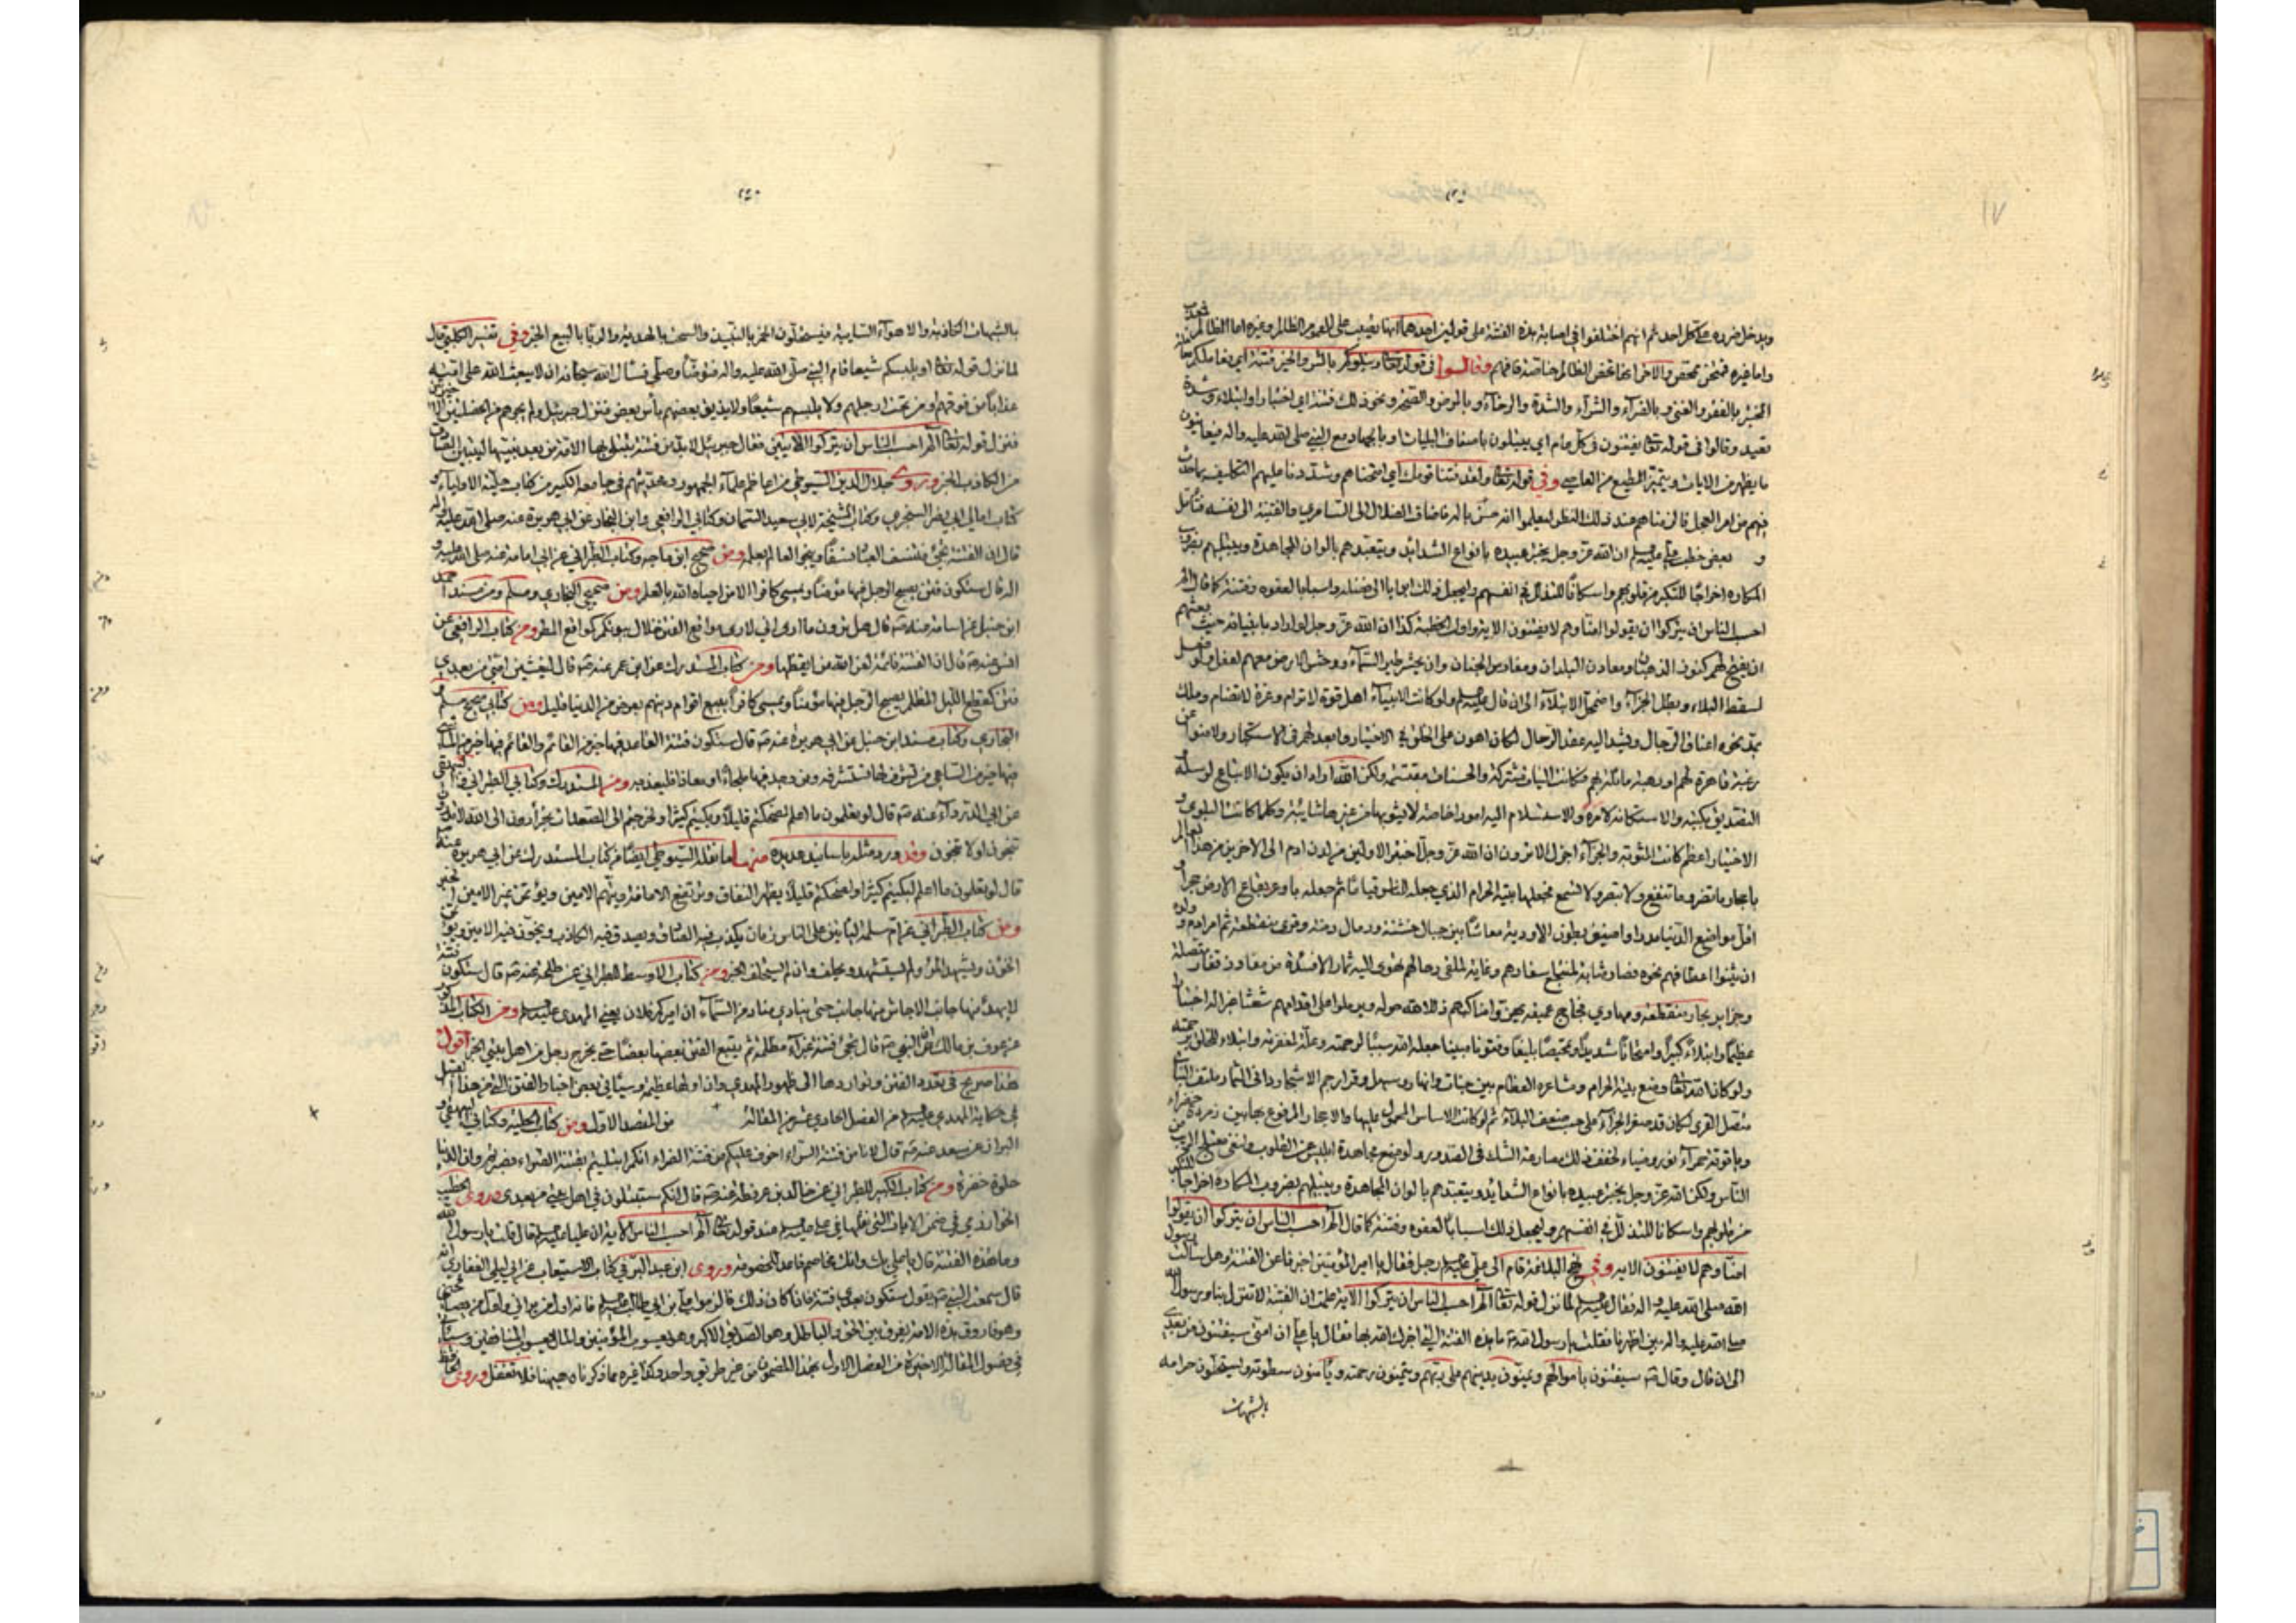 ١٧
ويدخل ضرره على كل احد ثم انهم اختلفوا في اصابة هذه الفتنة على قولين احدهما انها تصيب على العموم الظالم وغيره اما الظالم فمعذب
واما غيره فممتحن ممحص والاخر انها تخص الظالم خاصة فافهم وقالوا في قوله تعالى ونبلوكم بالشر والخير فتنة اي نعاملكم معاملة
المختبر بالفقر والغنى وبالضراء والسراء والشدة والرخاء وبالمرض والصحة ونحو ذلك فتنة اي اختبارا وابتلاء وشدة
تعبد وقالوا في قوله تعالى يفتنون في كل عام اي يبتلون باصناف البليات او بالجهاد مع النبي صلى الله عليه واله فيعاينون
ما يظهر من الايات ويتميز المطيع من العاصي وفي قوله تعالى ولقد فتنا قومك اي امتحناهم وشددنا عليهم التكليف بما حدث
فيهم من امر العجل فالزمناهم عند ذلك النظر ليعلموا انه ليس باله فاضاف الضلال الى السامري والفتنة الى نفسه فتأمل
و بعض خطب علي عليه السلم ان الله عز وجل يختبر عبيده بانواع الشدائد ويتعبدهم بالوان المجاهدة ويبتليهم بضروب
المكاره اخراجا للتكبر من قلوبهم واسكانا للتذلل في انفسهم وليجعل ذلك ابوابا الى فضله واسبابا لعفوه وفتنة كما قال الم
احسب الناس ان يتركوا ان يقولوا امنا وهم لا يفتنون الاية واول الخطبة كذا ان الله عز وجل لو اراد بانبيائه حيث بعثهم
ان يفتح لهم كنوز الذهبان ومعادن البلدان ومغارس الجنان وان يحشر طير السماء ووحش الارض معهم لفعل ولو فعل
لسقط البلاء وبطل الجزاء واضمحل الابتلاء الى ان قال عليه السلم ولو كانت الانبياء اهل قوة لا ترام وعزة لا تضام وملك
يمد نحوه اعناق الرجال ويشد اليه عقد الرحال لكان اهون على الخلق في الاختبار وابعد لهم في الاستكبار ولامنوا عن
رغبة قاهرة لهم او رهبة مائلة بهم فكانت النيات مشتركة والحسنات مقتسمة ولكن الله اراد ان يكون الاتباع لرسله
والتصديق بكتبه والاستكانة لامره والاستسلام اليه امورا خاصة لا يشوبها من غيرها شائبة وكلما كانت البلوى و
الاختبار اعظم كانت المثوبة والجزاء اجزل الا ترون ان الله عز وجل اختبر الاولين من لدن ادم الى الاخرين من هذا العالم
باحجار ما تضر وما تنفع ولا تبصر ولا تسمع فجعلها بيته الحرام الذي جعله للناس قياما ثم جعله باوعر بقاع الارض حجرا و
اقل مواضع الدنيا مدرا واضيق بطون الاودية معاشا بين جبال خشنة ورمال دمثة وقرى منقطعة ثم امر ادم وولده
ان يثنوا اعطافهم نحوه فصار مثابة لمنتجع اسفارهم وغاية لملقى رحالهم تهوى اليه ثمار الافئدة من مفاوز قفار متصلة
وجزاير بحار منقطعة ومهاوي فجاج عميقة حتى يهزوا مناكبهم ذللا لله حوله ويرملوا على اقدامهم شعثا غبرا له اختبارا
عظيما وابتلاء كبيرا وامتحانا شديدا وتمحيصا بليغا وفتونا مبينا جعله الله سببا لرحمته وعلة لمغفرته وابتلاء للخلق برحمته
ولو كان الله تعالى وضع بيته الحرام ومشاعره العظام بين جنات وانهار وسهل وقرار جم الاشجار داني الثمار ملتف النبات
متصل القرى لكان قد صغر الجزاء على حسب ضعف البلاء ثم لو كانت الاساس المحمول عليها والاحجار المرفوع بها بين زمردة خضراء
وياقوتة حمراء ونور وضياء لخفف ذلك مصارعة الشك في الصدور ولوضع مجاهدة ابليس عن القلوب ولنفى معتلج الريب من
الناس ولكن الله عز وجل يختبر عبيده بانواع الشدايد ويتعبدهم بالوان المجاهدة ويبتليهم بضروب المكاره اخراجا للتكبر
من قلوبهم واسكانا للتذلل في انفسهم وليجعل ذلك اسبابا لعفوه وفتنة كما قال الم احسب الناس ان يتركوا ان يقولوا
امنا وهم لا يفتنون الاية وفي نهج البلاغة قام الى علي عليه السلم رجل فقال يا امير المؤمنين اخبرنا عن الفتنة وهل سالت رسول
الله صلى الله عليه واله فقال عليه السلم لما نزل قوله تعالى الم احسب الناس ان يتركوا الاية علمت ان الفتنة لا تنزل بنا ورسول الله
صلى الله عليه واله بين اظهرنا فقلت يا رسول الله ما هذه الفتنة التي اخبرك الله بها فقال يا علي ان امتي سيفتنون من بعدي
الى ان قال وقال سيفتنون باموالهم ويمنون بدينهم على ربهم ويتمنون رحمته ويأمنون سطوته ويستحلون حرامه
بالشبهات
بالشبهات الكاذبة والاهواء الساهية فيستحلون الخمر بالنبيذ والسحت بالهدية والربا بالبيع الخبر وفي تفسير الكلبي قال
لما نزل قوله تعالى او يلبسكم شيعا قام النبي صلى الله عليه واله فتوضأ وصلى فسأل الله سبحانه ان لا يبعث الله على امته
عذابا من فوقهم او من تحت ارجلهم ولا يلبسهم شيعا ولا يذيق بعضهم بأس بعض فنزل جبرئيل ولم يجرهم من الخصلتين الاخيرتين
فنزل قوله تعالى الم احسب الناس ان يتركوا الايتين فقال جبرئيل لا بد من فتنة تبتلى بها الامة من بعد نبيها ليتبين الصادق
من الكاذب الخبر وروى جلال الدين السيوطي من اعاظم علماء الجمهور ومحدثيهم في جامعه الكبير من كتاب حلية الاولياء و
كتاب امالي ابي نصر السجزي وكتاب المشيخة لابي سعيد السمان وكتابي الرافعي وابن النجار عن ابي هريرة عنه صلى الله عليه واله
قال ان الفتنة تجئ فتنسف العباد نسفا وينجو العالم بعلمه ومن صحيح ابن ماجه وكتاب الطبراني عن ابي امامة عنه صلى الله عليه و
اله قال ستكون فتن يصبح الرجل فيها مؤمنا ويمسي كافرا الا من احياه الله بالعلم ومن صحيحي البخاري ومسلم ومن مسند احمد
ابن حنبل عن اسامة عنه قال هل ترون ما ارى اني لارى مواقع الفتن خلال بيوتكم كمواقع المطر ومن كتاب الرافعي عن
انس عنه قال ان الفتنة نائمة لعن الله من ايقظها ومن كتاب المستدرك عن ابن عمر عنه قال ليغشين امتي من بعدي
فتن كقطع الليل المظلم يصبح الرجل فيها مؤمنا ويمسي كافرا يبيع اقوام دينهم بعرض من الدنيا قليل ومن كتابي صحيح مسلم و
البخاري وكتاب مسند ابن حنبل عن ابي هريرة عنه قال ستكون فتنة القاعد فيها خير من القائم والقائم فيها خير من الماشي
فيها خير من الساعي من تشرف لها تستشرفه ومن وجد فيها ملجأ او معاذا فليعذ به ومن المستدرك وكتابي الطبراني والبيهقي
عن ابي الدرداء عنه قال لو تعلمون ما اعلم لضحكتم قليلا ولبكيتم كثيرا ولخرجتم الى الصعدات تجأرون الى الله لا تدرون
تنجون او لا تنجون وقد ورد مثله باسانيد عديدة منها ما نقله السيوطي ايضا من كتاب المستدرك عن ابي هريرة عنه
قال لو تعلمون ما اعلم لبكيتم كثيرا ولضحكتم قليلا يظهر النفاق وترتفع الامانة ويتهم الامين ويؤتمن غير الامين الخبر
ومن كتاب الطبراني عن ام سلمة ليأتين على الناس زمان يكذب فيه الصادق ويصدق فيه الكاذب ويخون فيه الامين ويؤتمن
الخؤن ويشهد المرء ولم يستشهد ويحلف وان لم يستحلف الخبر ومن كتاب الاوسط للطبراني عن طلحة عنه قال ستكون فتنة
لا يهدأ منها جانب الا جاش منها جانب حتى ينادي مناد من السماء ان اميركم فلان يعني المهدي عليه السلم ومن الكتاب المذكور
عن عوف بن مالك عن النبي قال تجئ فتنة غبراء مظلمة ثم يتبع الفتن بعضها بعضا حتى يخرج رجل من اهل بيتي الخبر اقول
هذا صريح في تعدد الفتن وتواردها الى ظهور المهدي وان اولها عظيمة وسيأتي بعض اخبار الفتن التي من هذا القبيل
في حكاية المهدي عليه السلم من الفصل الحادي عشر من المقالة من المقصد الاول ومن كتاب الحلية وكتابي البيهقي و
البزار عن سعد عنه قال لانا من فتنة السراء اخوف عليكم من فتنة الضراء انكم ابتليتم بفتنة الضراء فصبرتم وان الدنيا
حلوة خضرة ومن كتاب الكبير للطبراني عن خالد بن عرفطة عنه قال انكم ستبتلون في اهل بيتي من بعدي وروى الخطيب
الخوارزمي في ضمن الايات التي نقلها في علي عليه السلم عند قوله تعالى الم احسب الناس الاية ان عليا عليه السلم قال قلت يا رسول الله
وما هذه الفتنة قال يا علي بك وانك مخاصم فاعد للخصومة وروى ابن عبد البر في كتاب الاستيعاب عن ابي ليلى الغفاري انه
قال سمعت النبي يقول ستكون بعدي فتنة فاذا كان ذلك فالزموا علي بن ابي طالب عليه السلم فانه اول من يراني واول من يصافحني
وهو فاروق هذه الامة يفرق بين الحق والباطل وهو الصديق الاكبر وهو يعسوب المؤمنين والمال يعسوب المنافقين وسيأتي
في فصول المقالة الاخيرة من الفصل الاول بهذا المضمون من غير طريق واحد وكفى غيره مما ذكرناه هيهنا فلا تغفل وروى الحافظ